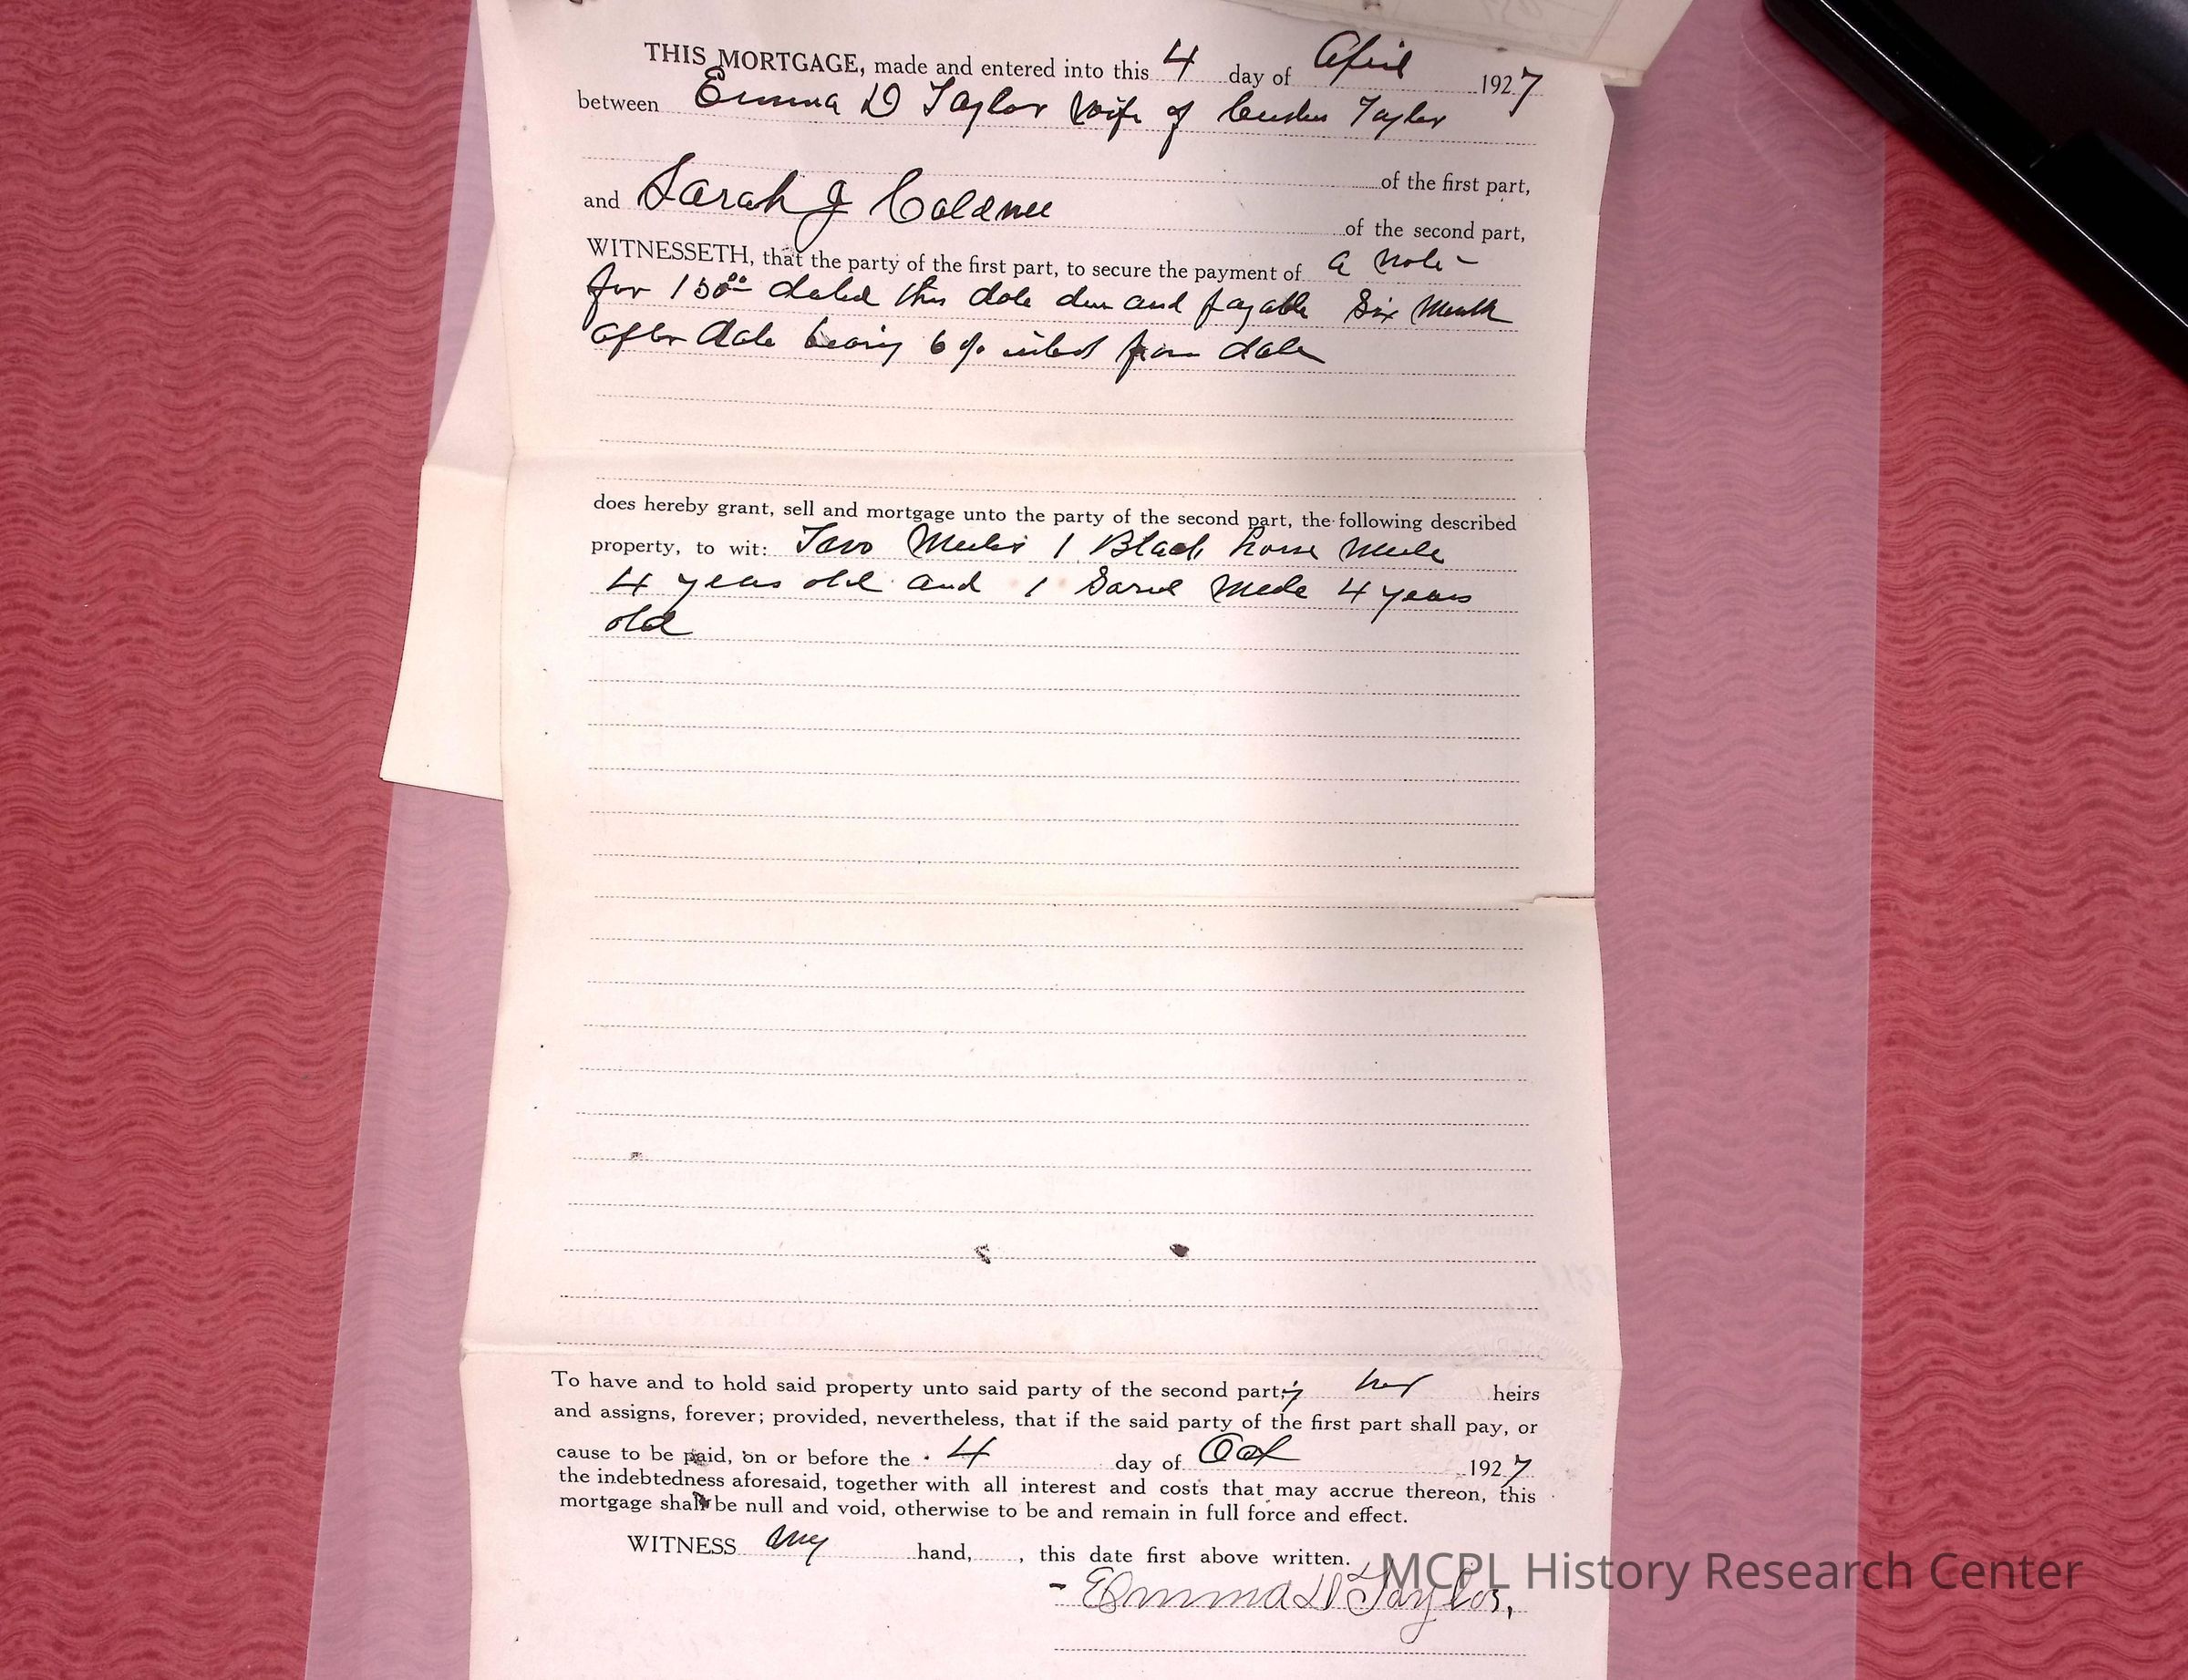 THIS MORTGAGE, made and entered into this 4 day of April 1927
between Emma D Taylor Wife of Taylor
of the first part,
and Sarah J
of the second part,
WITNESSETH, that the party of the first part, to secure the payment of a Note -
for 150.00 dated this date due and payable Six Month
after date bearing 6 % from date
does hereby grant, sell and mortgage unto the party of the second part, the following described
property, to wit: Two Mules 1 Black horse Mule
4 years old and 1 Sorrel Mule 4 years
old
To have and to hold said property unto said party of the second part, her heirs
and assigns, forever; provided, nevertheless, that if the said party of the first part shall pay, or
cause to be paid, on or before the 4 day of Oct 1927
the indebtedness aforesaid, together with all interest and costs that may accrue thereon, this
mortgage shall be null and void, otherwise to be and remain in full force and effect.
WITNESS my hand, , this date first above written.
- Emma D Taylor,
MCPL History Research Center